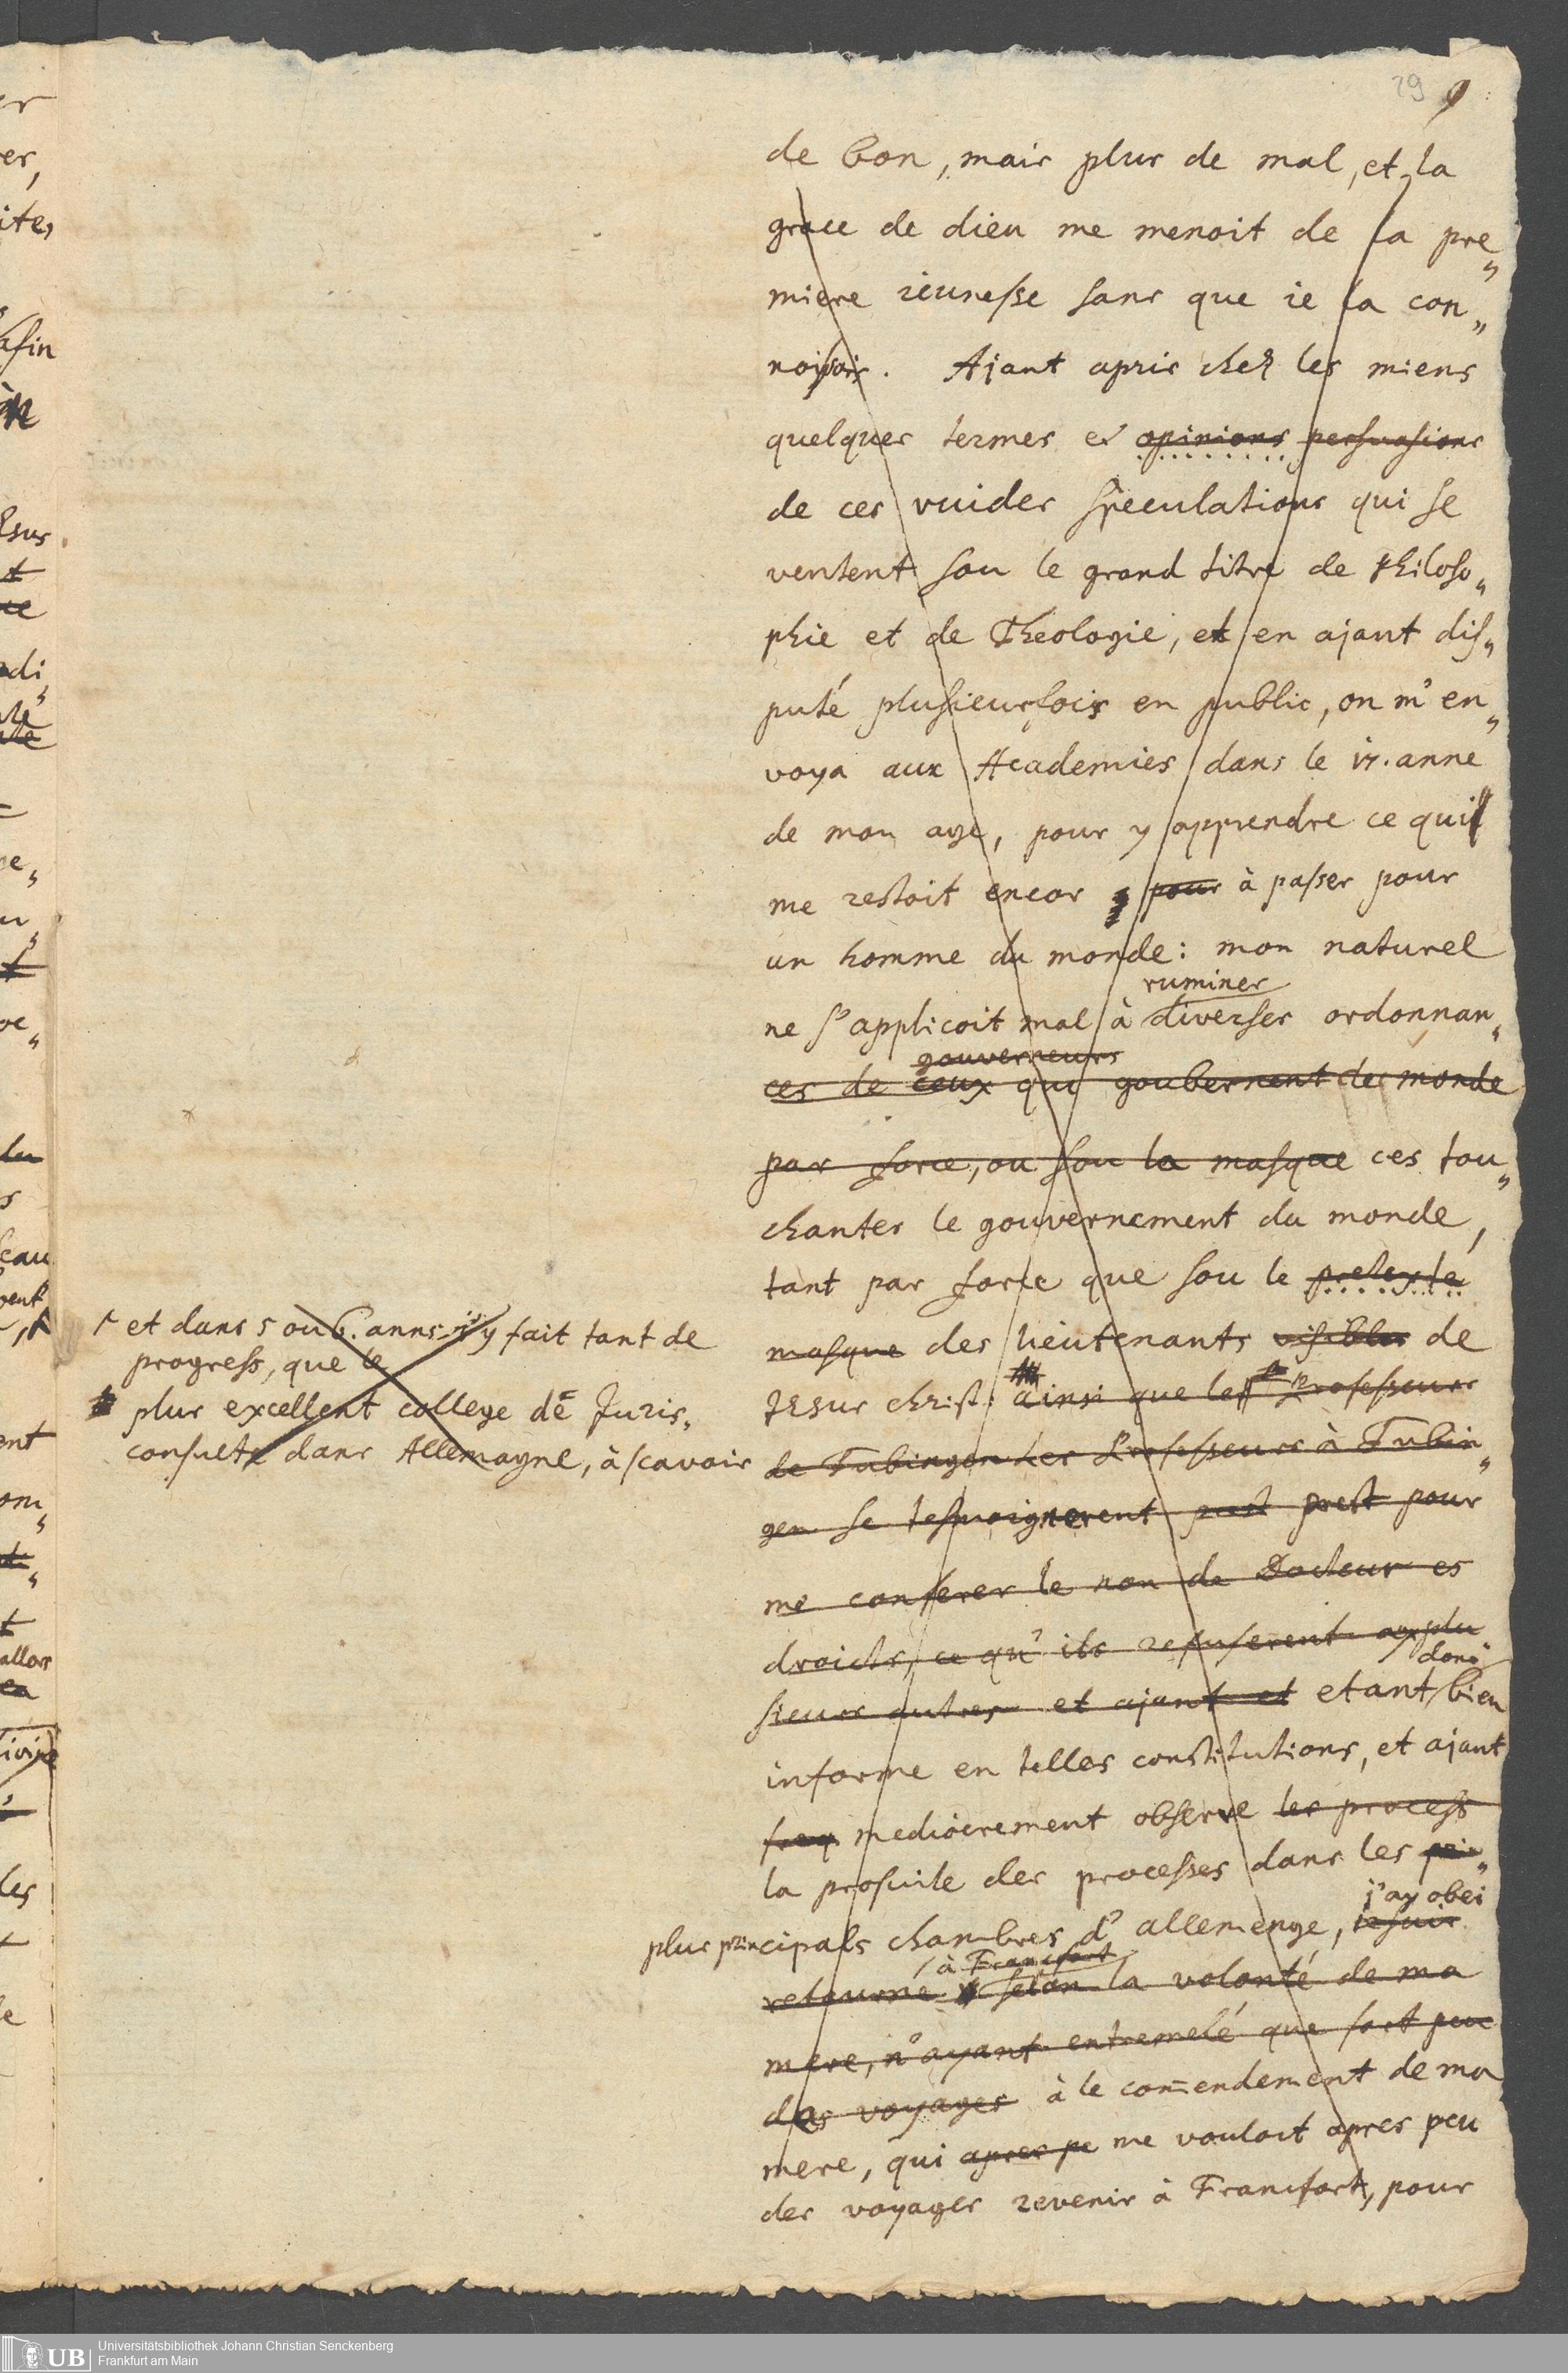 29
de bon, mais plus de mal, et la
grace de dieu me menoit de la pre„
miere ieunesse sans que ie la con„
noisois. Ajant apris chez les miens
quelques termes et opinions persuasions
de ces vuides speculations qui se
ventent sou le grand titre de Philoso„
phie et de Theologie, et en ajant dis„
puté plusieursfois en public, on m'en„
voya aux Academies dans le 17. anne
de mon age, pour y apprendre ce qui
me restoit encor pour à passer pour
un homme du monde: mon naturel
ruminer
ne s'applicoit mal à diverses ordonnan„
gouverneurs
ces de ceux qui goubernent de monde
par force, ou sou la masque ces tou„
chantes le gouvernement du monde,
tant par force que sou le pretexte
masque des lieutenants visibles de
Jesus christ: ainsi que les Professeurs
de Tubingen les Professeurs à Tubin„
gen se tesmoignerent prest pour
me conferer le nom de Docteur es
droicts, ce qu'ils refuserent aux plu
sieurs autres et ajant et etant donc bien
informe en telles constitutions, et ajant
mediocrement observe les process
la prosuite des processes dans les prin„
plus principals chambres d'allemenge, ie suis j'ay obei
à Francfort
retourné selon la volonté de ma
mere, n'ayant entremelé que fort peu
des voyages à le com̄endement de ma
mere, qui apres pe me vouloit apres peu
des voyages revenir à Francfort, pour
et dans 5 ou 6. anns i'y fait tant de
progress, que le
plus excellent college de Juris„
consults dans Allemagne, à scavoir
Universitätsbibliothek Johann Christian Senckenberg
Frankfurt am Main
UB